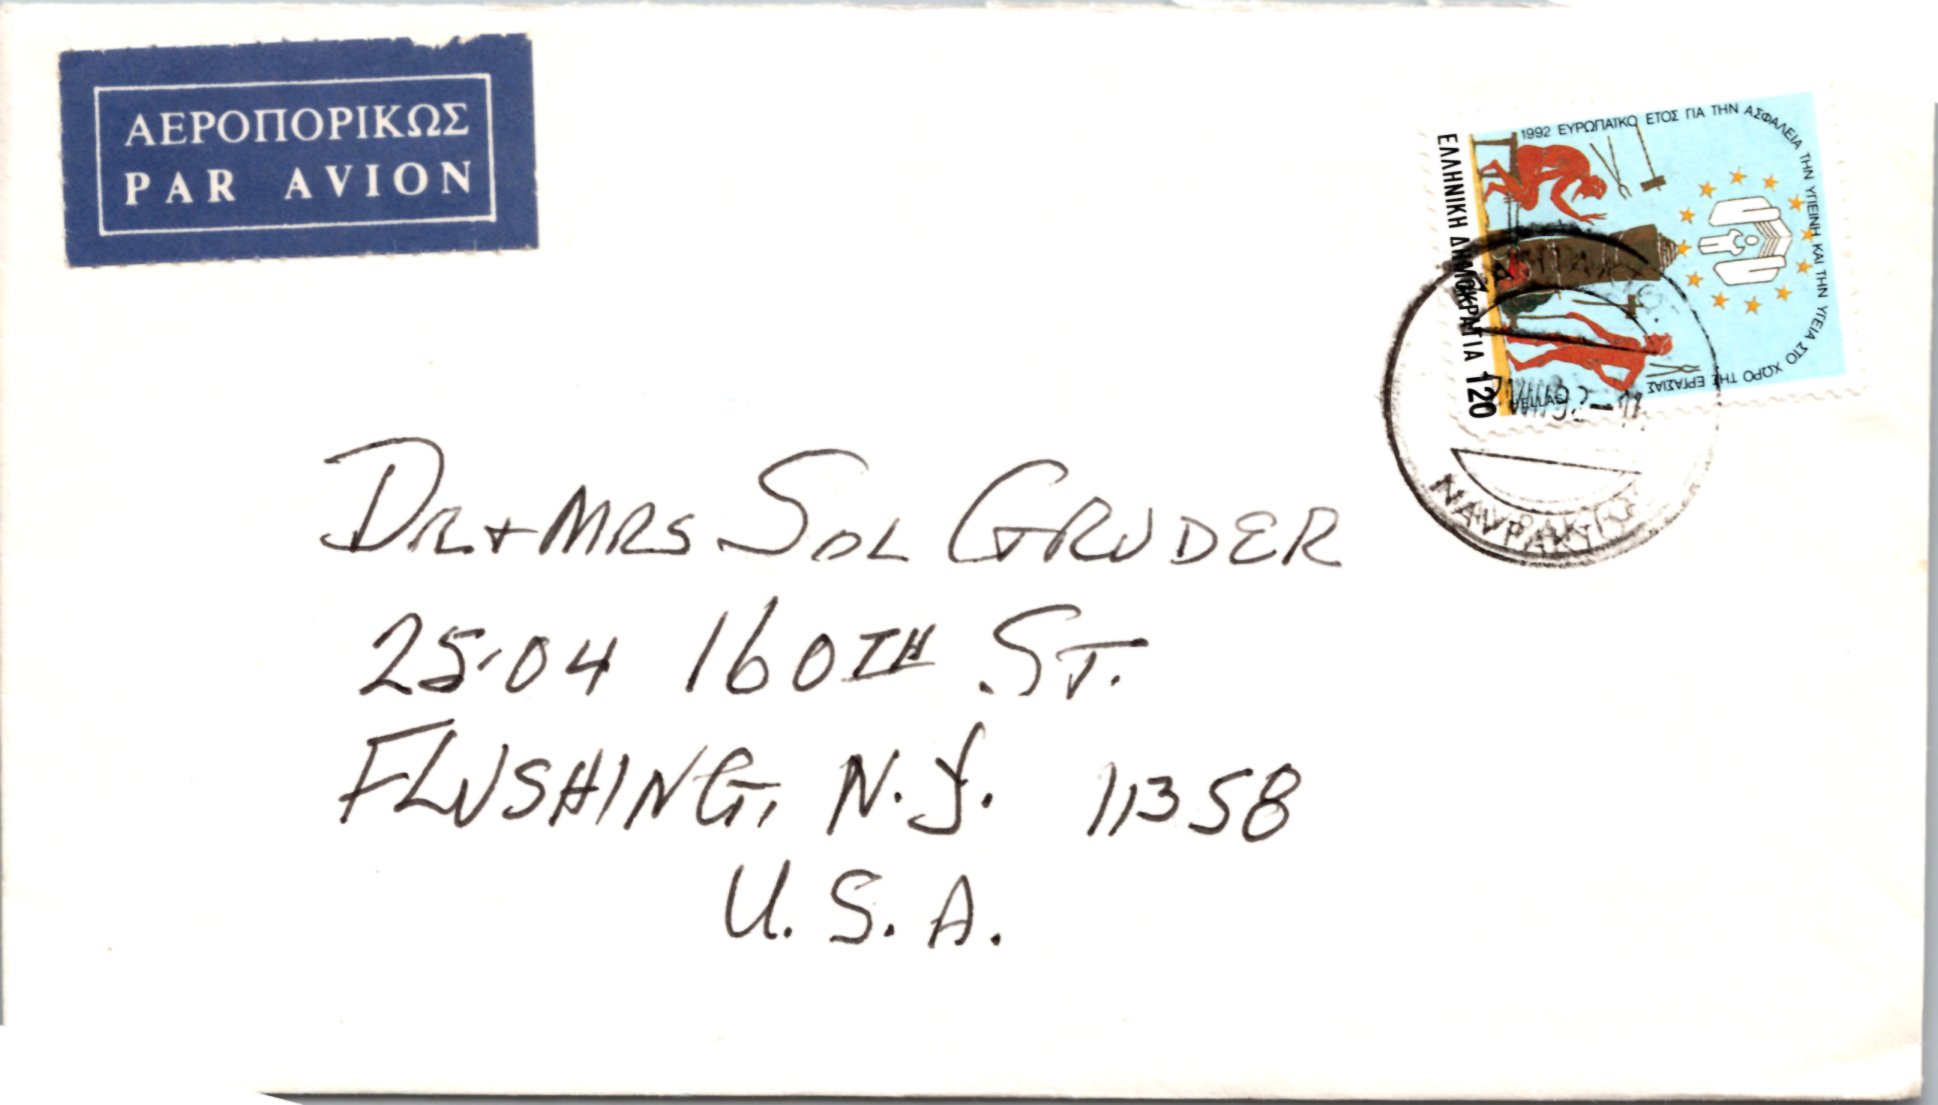 ΑΕΡΟΠΟΡΙΚΩΣ
PAR AVION
1992 ΕΥΡΩΠΑΪΚΟ ΕΤΟΣ ΓΙΑ ΤΗΝ ΑΣΦΑΛΕΙΑ ΤΗΝ ΥΓΙΕΙΝΗ ΚΑΙ ΤΗΝ ΥΓΕΙΑ ΣΤΟ ΧΩΡΟ ΤΗΣ ΕΡΓΑΣΙΑΣ
ΕΛΛΗΝΙΚΗ ΔΗΜΟΚΡΑΤΙΑ 120
HELLAS
ΝΑΥΡΑΚΤΟΣ
DR + MRS SOL GRUDER
25-04 160TH ST.
FLUSHING, N.Y. 11358
U. S. A.